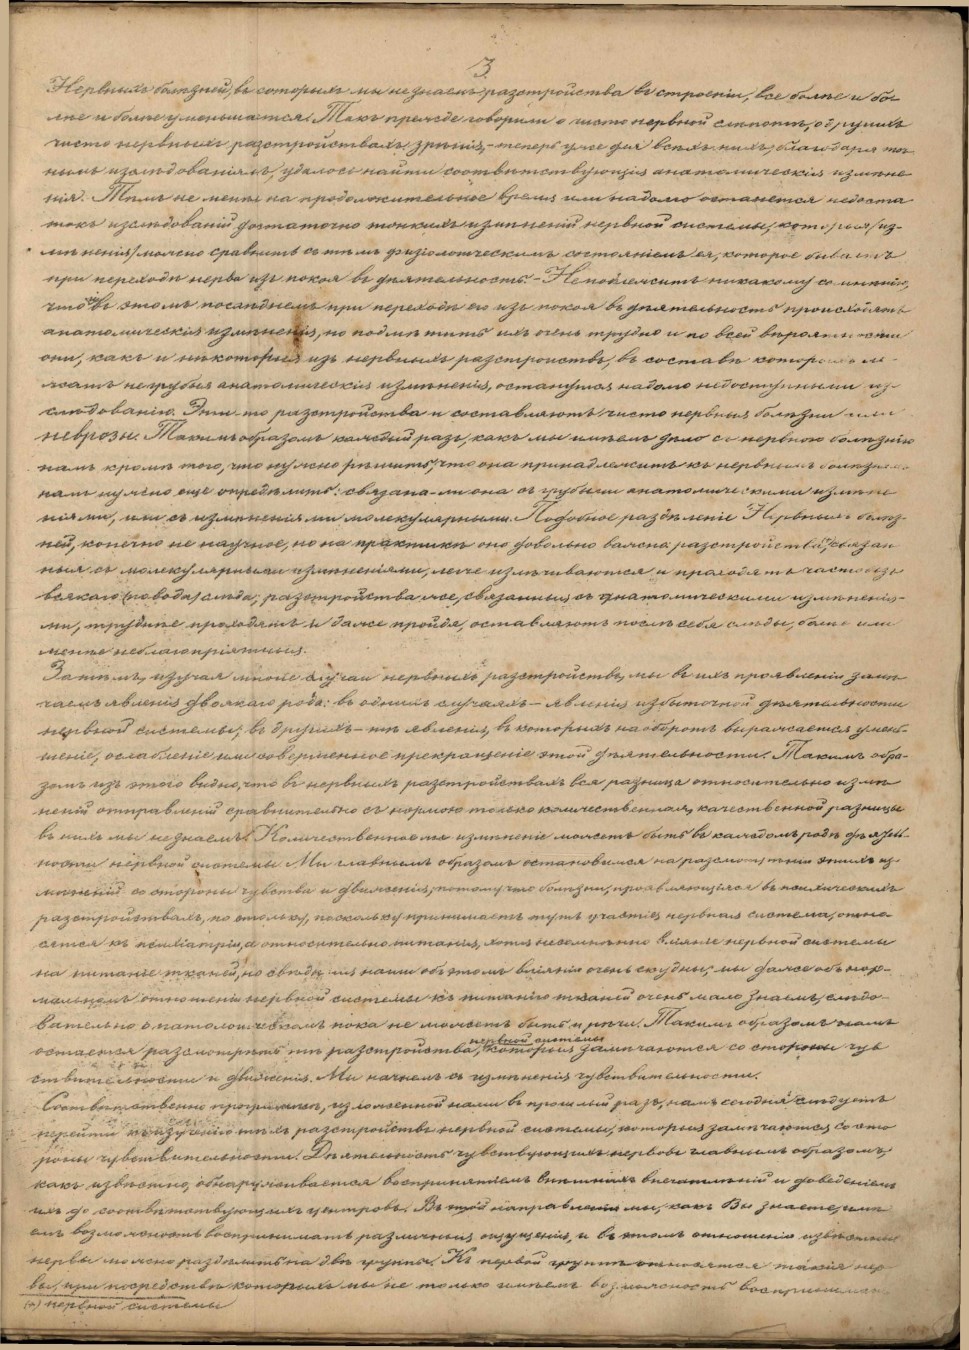 3.
Нервныхъ болѣзней, въ которыхъ мы не знаемъ разстройства въ строеніи, все болѣе и бо-
лѣе и болѣе уменьшается. Такъ прежде говорили о чисто нервной слѣпотѣ, о другихъ
чисто нервныхъ разстройствахъ зрѣнія, - теперь уже для всѣхъ нихъ, благодаря точ
нымъ изслѣдованіямъ, удалось найти соотвѣтствующія анатомическія измѣне
нія. Тѣмъ не менѣе на продолжительное время или надолго останется недоста
токъ изслѣдованій достаточно тонкихъ измѣненій нервной системы, которыя (из-
мѣненія) можно сравнить съ тѣмъ физіологическимъ состояніемъ ея, которое бываетъ
при переходѣ нерва изъ покоя въ дѣятельность. - Не подлежитъ никакому сомнѣнію,
что въ этомъ послѣднемъ при переходѣ его изъ покоя въ дѣятельность происходятъ
анатомическія измѣненія, но подмѣтить ихъ очень трудно и по всей вѣроятности
они, какъ и нѣкоторыя изъ нервныхъ разстройствъ, въ составѣ которыхъ ле-
жатъ негрубыя анатомическія измѣненія, останутся надолго недоступными из-
слѣдованію. Эти-то разстройства и составляютъ чисто нервныя болѣзни или
неврозы. Такимъ образомъ каждый разъ, какъ мы имѣемъ дѣло съ нервною болѣзнію
намъ кромѣ того, что нужно рѣшить, что она принадлежитъ къ нервнымъ болѣзнямъ
намъ нужно еще опредѣлить: связана-ли она съ грубыми анатомическими измѣне
ніями, или съ измѣненіями молекулярными. Подобное раздѣленіе Нервныхъ болѣз-
ней, конечно не научное, но на практикѣ оно довольно важно: разстройства, связан
ныя съ молекулярными измѣненіями, легче излѣчиваются и проходятъ часто безъ
всякаго слѣда; разстройства же, связанныя съ анатомическими измѣненія-
ми, труднѣе проходятъ и даже пройдя, оставляютъ послѣ себя слѣды, болѣе или
менѣе неблагопріятныя.
Затѣмъ, изучая многіе случаи нервныхъ разстройствъ, мы въ ихъ проявленіи замѣ
чаемъ явленія двоякаго рода: въ однихъ случаяхъ - явленія избыточной дѣятельности
нервной системы; въ другихъ - тѣ явленія, въ которыхъ наоборотъ выражается умень
шеніе, ослабленіе или совершенное прекращеніе этой дѣятельности. Такимъ обра-
зомъ изъ этого видно, что въ нервныхъ разстройствахъ вся разница относительно измѣ
неній отправленій сравнительно съ нормою только количественная, качественной разницы
въ нихъ мы не знаемъ. Количественное же измѣненіе можетъ быть въ каждомъ родѣ дѣятель-
ности нервной системы. Мы главнымъ образомъ остановимся на разсмотрѣніи этихъ из
мѣненій со стороны чувства и движенія, потому что болѣзни, проявляющіяся въ психическихъ
разстройствахъ, по стольку, поскольку принимаетъ тутъ участіе нервная система, отно-
сятся къ психіатріи, а относительно питанія, хотя несомнѣнно вліяніе нервной системы
на питаніе тканей, но свѣденія наши объ этомъ вліяніи очень скудны; мы даже объ нор-
мальномъ отношеніи нервной системы къ питанію тканей очень мало знаемъ, слѣдо-
вательно о патологическомъ пока не можетъ быть и рѣчи. Такимъ образомъ намъ
остается разсмотрѣть тѣ разстройства нервной системы, которыя замѣчаются со стороны чув
ствительности и движенія. Мы начнемъ съ измѣненія чувствительности.
Соотвѣтственно программѣ, изложенной нами въ прошлый разъ, намъ сегодня слѣдуетъ
перейти къ изученію тѣхъ разстройствъ нервной системы, которыя замѣчаются со сто
роны чувствительности. Дѣятельность чувствующихъ нервовъ главнымъ образомъ,
какъ извѣстно, обнаруживается воспринятіемъ внѣшнихъ впечатлѣній и доведеніемъ
ихъ до соотвѣтствующихъ центровъ. Въ этой направленіи мы, какъ Вы знаете, имѣ
емъ возможность воспринимать различныя ощущенія, и въ этомъ отношеніи извѣстные
нервы можно раздѣлить на двѣ группы. Къ первой группѣ относятся такіе нер
вы, при посредствѣ которыхъ мы не только имѣемъ возможность воспринимать
(х) нервной системы